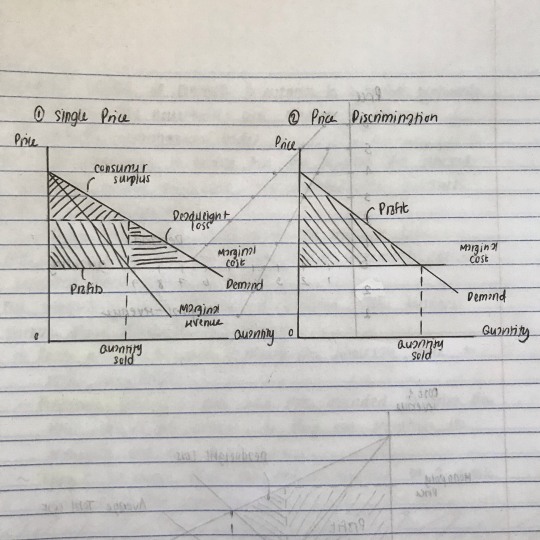 ① Single Price
Price
consumer
surplus
Deadweight
loss
Marginal
cost
Demand
Profits
Marginal
revenue
0
Quantity
Quantity
sold
② Price Discrimination
Price
Profit
Marginal
cost
Demand
0
Quantity
Quantity
sold